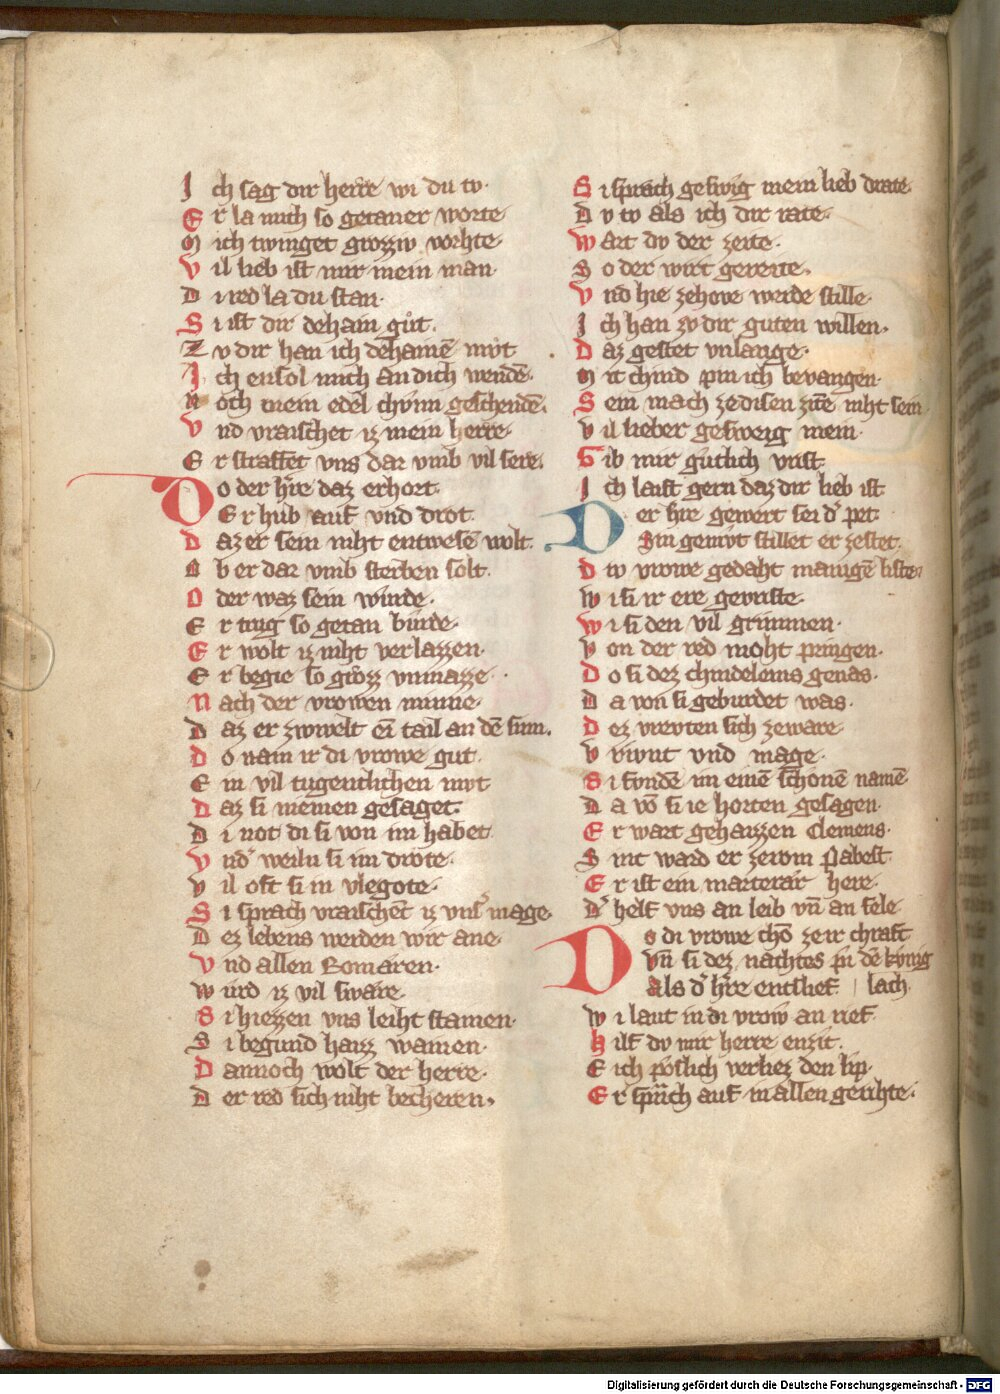 Ich sag dir herre wi du tv·
Er la mich so getaner worte
Mich twinget grozziv vorhte·
Vil lieb ist mir mein man·
Di red la du stan·
Si ist dir dehain gůt·
Zv dir han ich dehainē mvt
Ich ensol mich an dich wendē·
Noch mein edel chvnn geschendē·
Vnd vraischet iz mein herre·
Er straffet vns dar vmb vil sere·
Do der h̄re daz erhort·
Er hub auf vnd drot
Daz er sein niht entwesē wolt·
Ob er dar vmb sterben solt·
Oder waz sein wurde·
Er trug so getan burde·
Er wolt iz niht verlazzen·
Er begie so grozz vnmazze·
Nach der vrowen minne·
Daz er zwivelt ein tail an dē sinn·
Do nam ir di vrowe gut
Ein vil tugentlichen mvt
Daz si niemen gesaget·
Di not di si von im habet
Vnd' weiln si im drote·
Vil oft si in vlegote·
Si sprach vraischet iz vnser mage·
Dez lebens werden wir ane·
Vnd allen Romaren·
Wurd iz vil sware·
Si hiezzen vns leiht stainen·
Si begund haizz wainen·
Dannoch wolt der herre·
Der red sich niht becheren·
Si sprach geswig mein lieb drate·
Dv tv als ich dir rate·
Wart dv der zeite·
So der wirt gereite·
Vnd hie zehove werde stille·
Ich han zv dir guten willen·
Daz gestet vnlange·
Mit chind pin ich bevangen·
Sein mach zedisen zitē niht sein
Vil lieber gesweig mein·
Gib mir gutlich vrist
Ich laist gern daz dir lieb ist
Der h̄re gewert sei d' pet
Sin gemvt stillet er zestet·
Div vrowe gedaht manigē liste·
Wi si ir ere gevriste·
Wi si den vil grimmen·
Von der red moht pringen·
Do si dez chindeleins genas·
Da von si geburdet was·
Dez vrevten sich zeware·
Vrivnt vnd mage·
Si fvndē im einē schonē namē·
Da vō si ie horten gesagen·
Er wart gehaizzen Clemens·
Sint ward er zerom Pabest·
Er ist ein marterar here·
D' helf vns an leib vn̄ an sele
Do di vrowe chō ze ir chraft
Vn̄ si dez nachtes pi dē kvnig
Als d' h̄re entslief· | lach·
Wi laut in di vrow an rief·
Hilf dv mir herre enzit·
E ich poslich verliez den lip·
Er sprach auf in allen gerihte·
Digitalisierung gefördert durch die Deutsche Forschungsgemeinschaft - DFG